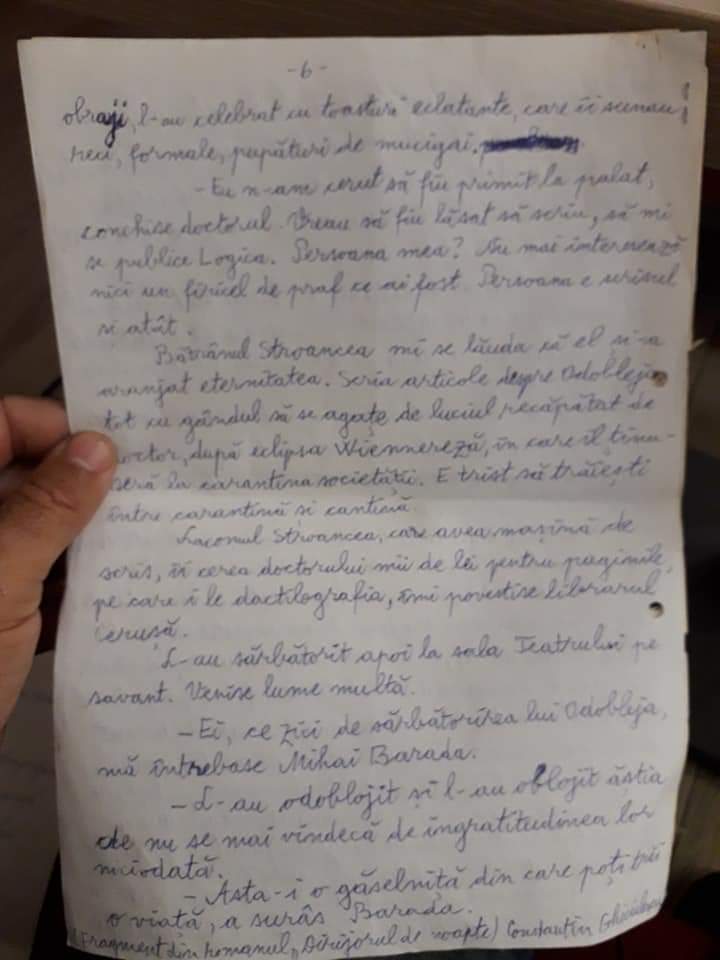 -6-
obraji, l-au celebrat cu toasturi eclatante, care îi sunau
reci, formale, pupături de mucigai.
- Eu n-am cerut să fiu primit la palat,
conchise doctorul. Vreau să fiu lăsat să scriu, să mi
se publice Logica. Persoana mea? Nu mai interesează
nici un firicel de praf ce ai fost. Persoana e scrisul
și atât.
Bătrânul Stroancea mi se lăuda că el și-a
aranjat eternitatea. Scria articole despre Odobleja
tot cu gândul să se agațe de luciul recăpătat de
doctor, după eclipsa Wiennereză, în care îl ținu-
seră la carantina societății. E trist să trăiești
între carantină și cantină.
Lacomul Stroancea, care avea mașină de
scris, îi cerea doctorului mii de lei pentru paginile,
pe care i le dactilografia, îmi povestise librarul
Cerușă.
L-au sărbătorit apoi la sala Teatrului pe
savant. Venise lume multă.
- Ei, ce zici de sărbătorirea lui Odobleja,
mă întrebase Mihai Barada.
- L-au odoblojit și l-au oblojit ăștia
de nu se mai vindecă de ingratitudinea lor
niciodată.
- Asta-i o găselniță din care poți trăi
o viață, a surâs Barada.
Fragment din romanul „Dirijorul de noapte) Constantin